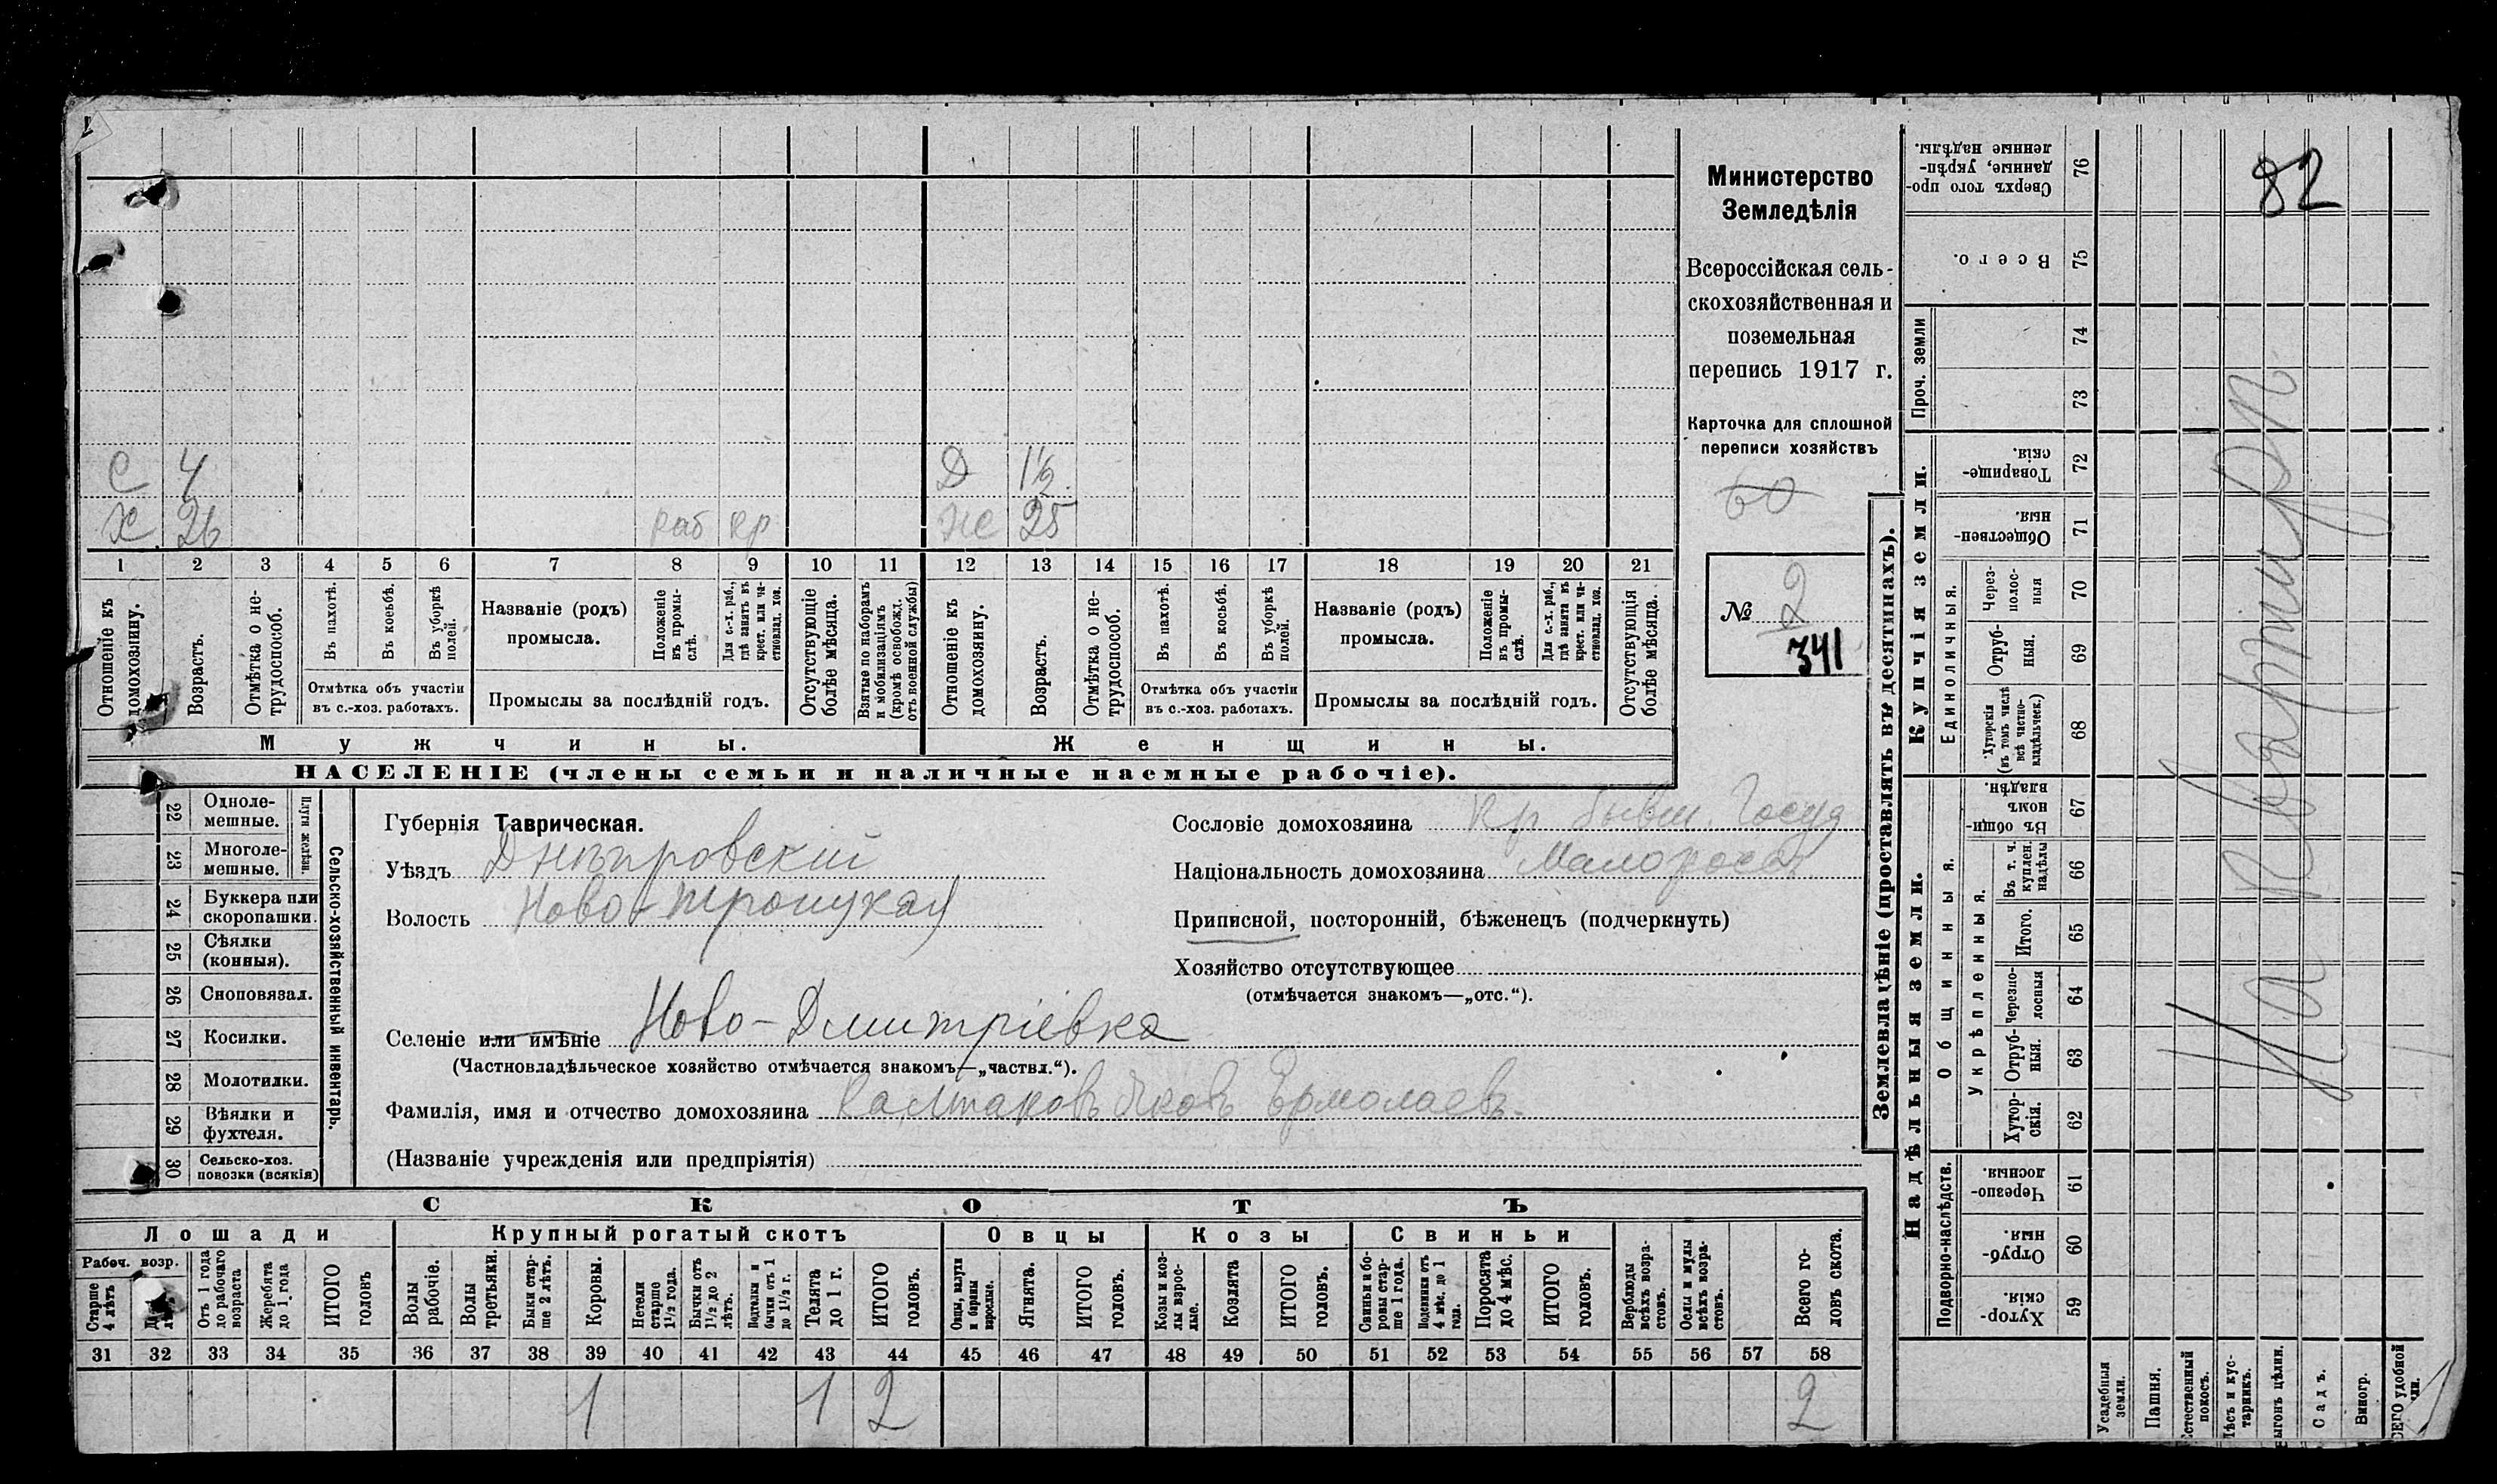 С 4 Д 1½
Х 26 раб кр Ж 25
1 2 3 4 5 6 7 8 9 10 11 12 13 14 15 16 17 18 19 20 21
Отношеніе къ домохозяину.
Возрастъ.
Отмѣтка о не-трудоспособ.
Въ пахотѣ.
Въ косьбѣ.
Въ уборкѣ полей.
Отмѣтка объ участіи
въ с.-хоз. работахъ.
Названіе (родъ)
промысла.
Положеніе въ промы-слѣ.
Для с.-х. раб., гдѣ занятъ въ крест. или ча-стновлад. хоз.
Промыслы за послѣдній годъ.
Отсутствующіе болѣе мѣсяца.
Взятые по наборамъ и мобилизаціямъ (кромѣ освобожд. отъ военной службы)
Отношеніе къ домохозяину.
Возрастъ.
Отмѣтка о не-трудоспособ.
Въ пахотѣ.
Въ косьбѣ.
Въ уборкѣ полей.
Отмѣтка объ участіи
въ с.-хоз. работахъ.
Названіе (родъ)
промысла.
Положеніе въ промы-слѣ.
Для с.-х. раб., гдѣ занята въ крест. или ча-стновлад. хоз.
Промыслы за послѣдній годъ.
Отсутствующія болѣе мѣсяца.
Мужчины. Женщины.
НАСЕЛЕНІЕ (члены семьи и наличные наемные рабочіе).
Министерство
Земледѣлія
Всероссійская сель-
скохозяйственная и
поземельная
перепись 1917 г.
Карточка для сплошной
переписи хозяйствъ
60
№ 2
341
22 Одноле-мешные.
23 Многоле-мешные.
Плуги желѣзн.
24 Буккера или скоропашки.
25 Сѣялки (конныя).
26 Сноповязал.
27 Косилки.
28 Молотилки.
29 Вѣялки и фухтеля.
30 Сельско-хоз. повозки (всякія)
Сельско-хозяйственный инвентарь.
Губернія Таврическая.
Уѣздъ Днѣпровскій
Волость Ново-Троицкая
Селеніе или имѣніе Ново-Дмитріевка
(Частновладѣльческое хозяйство отмѣчается знакомъ—„частвл.“).
Фамилія, имя и отчество домохозяина Яковъ Ермолаевъ.
(Названіе учрежденія или предпріятія)
Сословіе домохозяина Кр бывш. Госуд
Національность домохозяина Малоросс
Приписной, посторонній, бѣженецъ (подчеркнуть)
Хозяйство отсутствующее
(отмѣчается знакомъ—„отс.“).
СКОТЪ
Лошади Крупный рогатый скотъ Овцы Козы Свиньи
Рабоч. возр.
Старше 4 лѣтъ
Отъ 1 года до рабочаго возраста
Жеребята до 1 года
ИТОГО головъ
Волы рабочіе.
Волы третьяки.
Быки стар-ше 2 лѣтъ.
Коровы.
Нетели старше 1½ года.
Бычки отъ 1½ до 2 лѣтъ.
Подтелки и бычки отъ 1 до 1½ г.
Телята до 1 г.
ИТОГО головъ.
Овцы, валухи и бараны взрослые.
Ягнята.
ИТОГО головъ.
Козы и коз-лы взрос-лые.
Козлята
ИТОГО головъ.
Свиньи и бо-ровы стар-ше 1 года.
Подсвинки отъ 4 мѣс. до 1 года.
Поросята до 4 мѣс.
ИТОГО головъ.
Верблюды всѣхъ возра-стовъ.
Ослы и мулы всѣхъ возра-стовъ.
Всего го-ловъ скота.
31 32 33 34 35 36 37 38 39 40 41 42 43 44 45 46 47 48 49 50 51 52 53 54 55 56 57 58
1 1 2 2
Землевладѣніе (проставлять въ десятинахъ).
Надѣльныя земли. Купчія земли. Проч. земли
Подворно-наслѣдств.
Общинныя.
Укрѣпленныя.
Единоличныя.
Хутор-скія. 59
Отруб-ныя. 60
Черезпо-лосныя. 61
Хутор-скія. 62
Отруб-ныя. 63
Черезпо-лосныя 64
Итого. 65
Въ т. ч. куплен. надѣлы 66
Въ общин-номъ владѣн. 67
Хуторскія (въ томъ числѣ всѣ частно-владѣльческ.) 68
Отруб-ныя. 69
Через-полос-ныя 70
Обществен-ныя. 71
Товарище-скія. 72
73
74
Всего. 75
Сверхъ того про-данные, укрѣп-ленные надѣлы. 76
Усадебныя земли.
Пашня.
Естественный покосъ.
Лѣсъ и кус-тарникъ.
Выгонъ цѣлин.
Садъ.
Виногр.
82
На квартирѣ